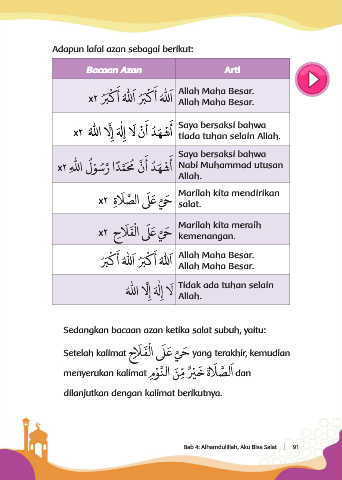 Adapun lafal azan sebagai berikut:
Bacaan Azan Arti
اَللّٰهُ أَكْبَرُ اَللّٰهُ أَكْبَرُ x٢ Allah Maha Besar.
Allah Maha Besar.
أَشْهَدُ أَنْ لَا إِلٰهَ إِلَّا اللهُ x٢ Saya bersaksi bahwa
tiada tuhan selain Allah.
أَشْهَدُ أَنَّ مُحَمَّدًا رَسُوْلُ اللهِ x٢ Saya bersaksi bahwa
Nabi Muhammad utusan
Allah.
حَيَّ عَلَى الصَّلَاةِ x٢ Marilah kita mendirikan
salat.
حَيَّ عَلَى الْفَلَاحِ x٢ Marilah kita meraih
kemenangan.
اَللّٰهُ أَكْبَرُ اَللّٰهُ أَكْبَرُ Allah Maha Besar.
Allah Maha Besar.
لَا إِلٰهَ إِلَّا اللهُ Tidak ada tuhan selain
Allah.
Sedangkan bacaan azan ketika salat subuh, yaitu:
Setelah kalimat حَيَّ عَلَى الْفَلَاحِ yang terakhir, kemudian
menyerukan kalimat اَلصَّلَاةُ خَيْرٌ مِّنَ النَّوْمِ dan
dilanjutkan dengan kalimat berikutnya.
Bab 4: Alhamdulillah, Aku Bisa Salat | 91